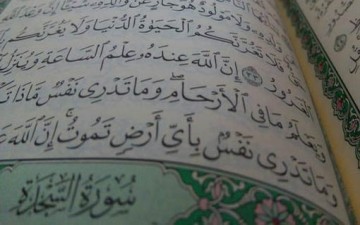 وَلَا مَوْلُودٌ هُوَ جَازٍ عَن
فَلَا تَغُرَّنَّكُمُ ٱلْحَيَوٰةُ ٱلدُّنْيَا وَلَا يَغُرَّنَّكُم
ٱلْغَرُورُ ٣٣ إِنَّ ٱللَّهَ عِندَهُۥ عِلْمُ ٱلسَّاعَةِ وَيُنَزِّلُ
وَيَعْلَمُ مَا فِى ٱلْأَرْحَامِ ۖ وَمَا تَدْرِى نَفْسٌ مَّاذَا
وَمَا تَدْرِى نَفْسٌۢ بِأَىِّ أَرْضٍ تَمُوتُ ۚ إِنَّ ٱللَّهَ
سُورَةُ السَّجْدَةِ